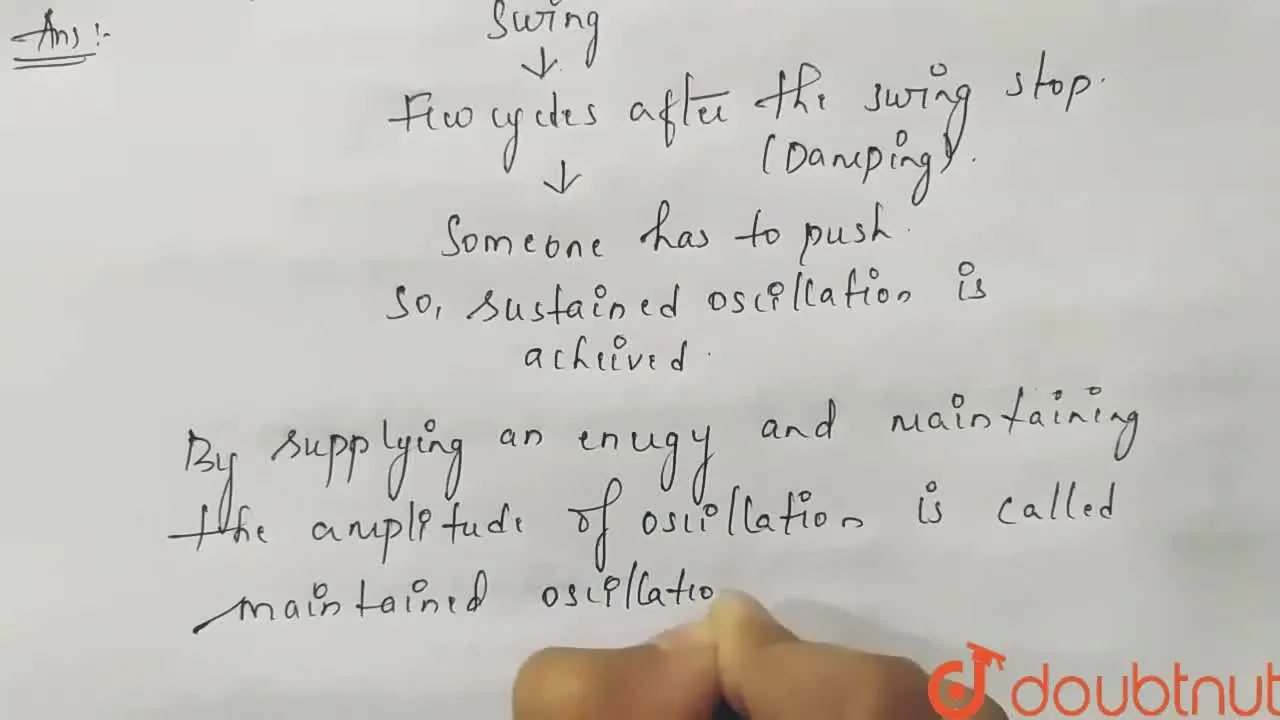 Ans :-
Swing
↓
Few cycles after the swing stop.
(Damping).
↓
Someone has to push.
So, sustained oscillation is
acheived.
By supplying an energy and maintaining
the amplitude of oscillation is called
maintained oscillatio
doubtnut